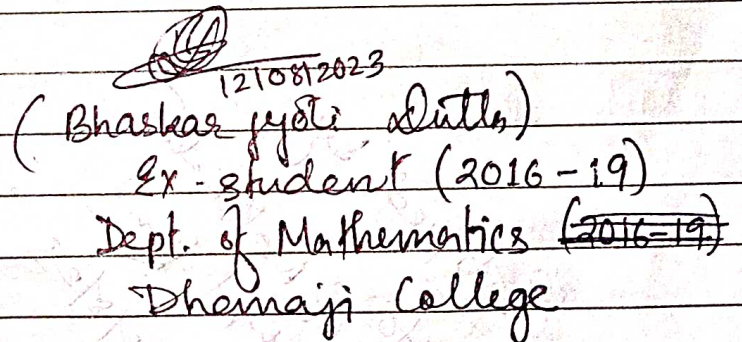 12/08/2023
(Bhaskar jyoti Dutta)
Ex-student (2016-19)
Dept. of Mathematics (2016-19)
Dhemaji College